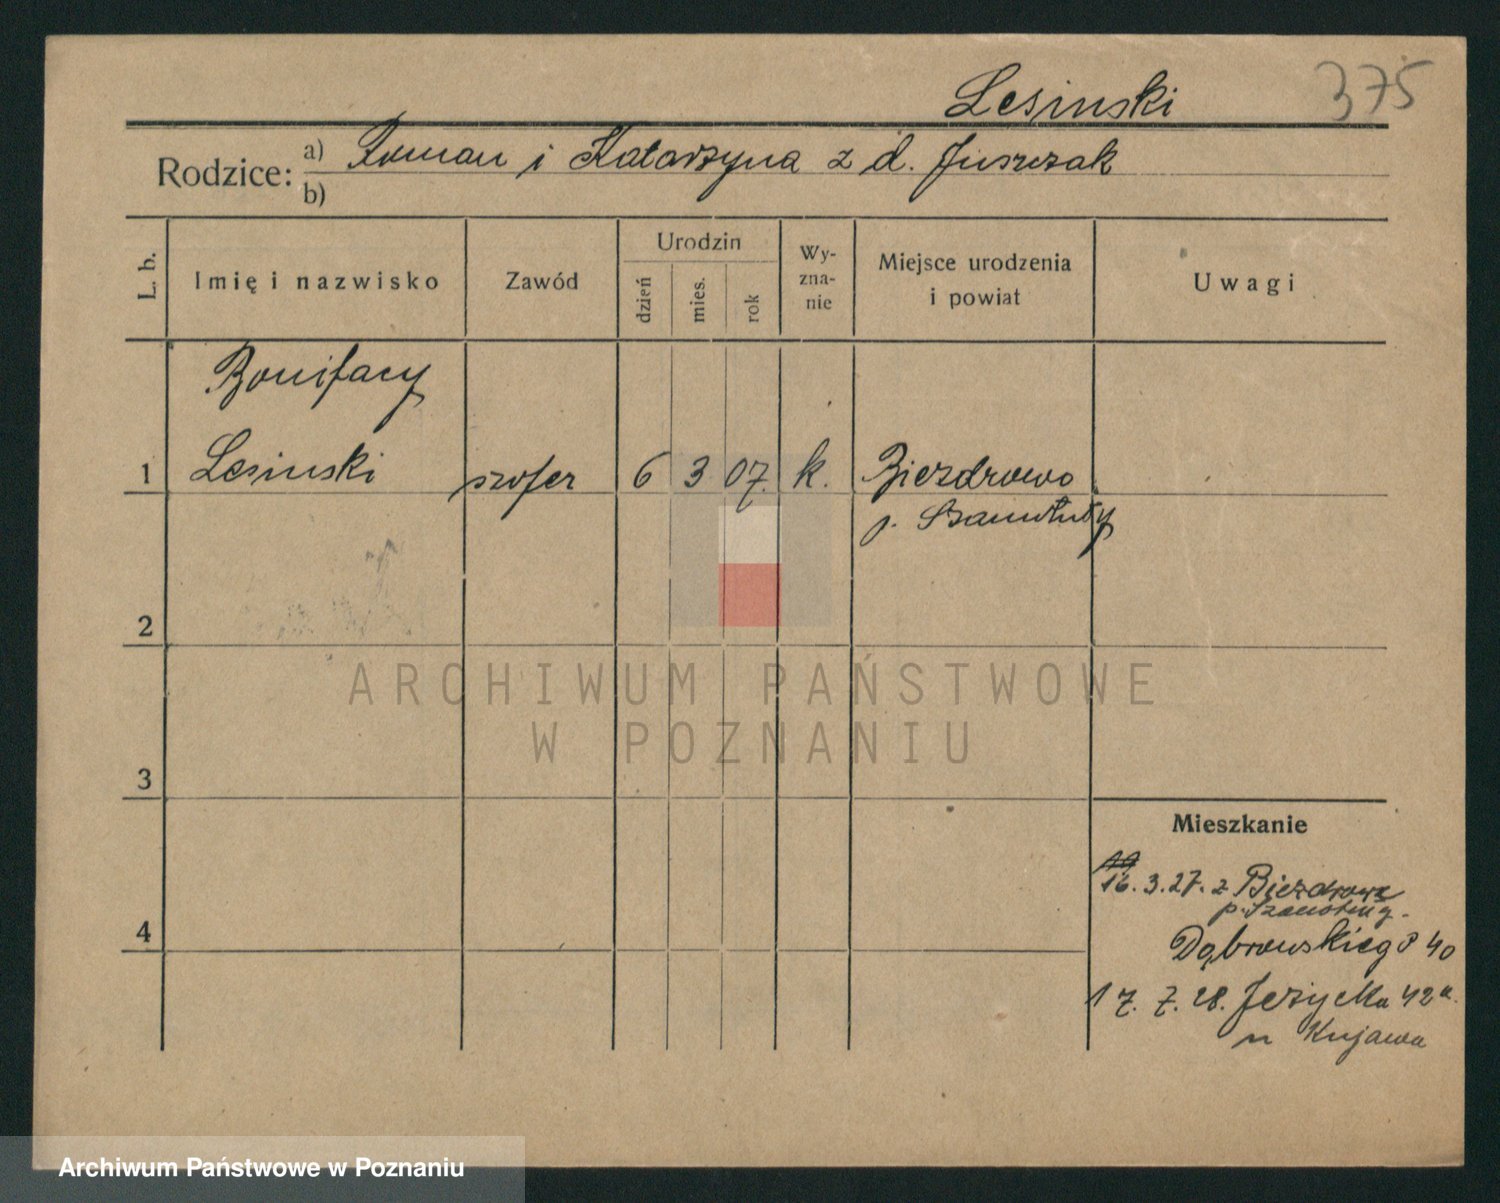 Lesinski 375
Rodzice: a) Roman i Katarzyna z d. Juszczak
b)
L. b.
Imię i nazwisko
Zawód
Urodzin
dzień
mies.
rok
Wy-
zna-
nie
Miejsce urodzenia
i powiat
Uwagi
Bonifacy
1 Lesinski szofer 6 3 07. k. Biezdrowo
p. Szamotuły
2
3
4
Mieszkanie
16. 3. 27. z Biezdrowa
p. Szamotuły.
Dąbrowskiego 40
17. 7. 28. Jeżycka 42a.
u Kujawa
ARCHIWUM PAŃSTWOWE
W POZNANIU
Archiwum Państwowe w Poznaniu